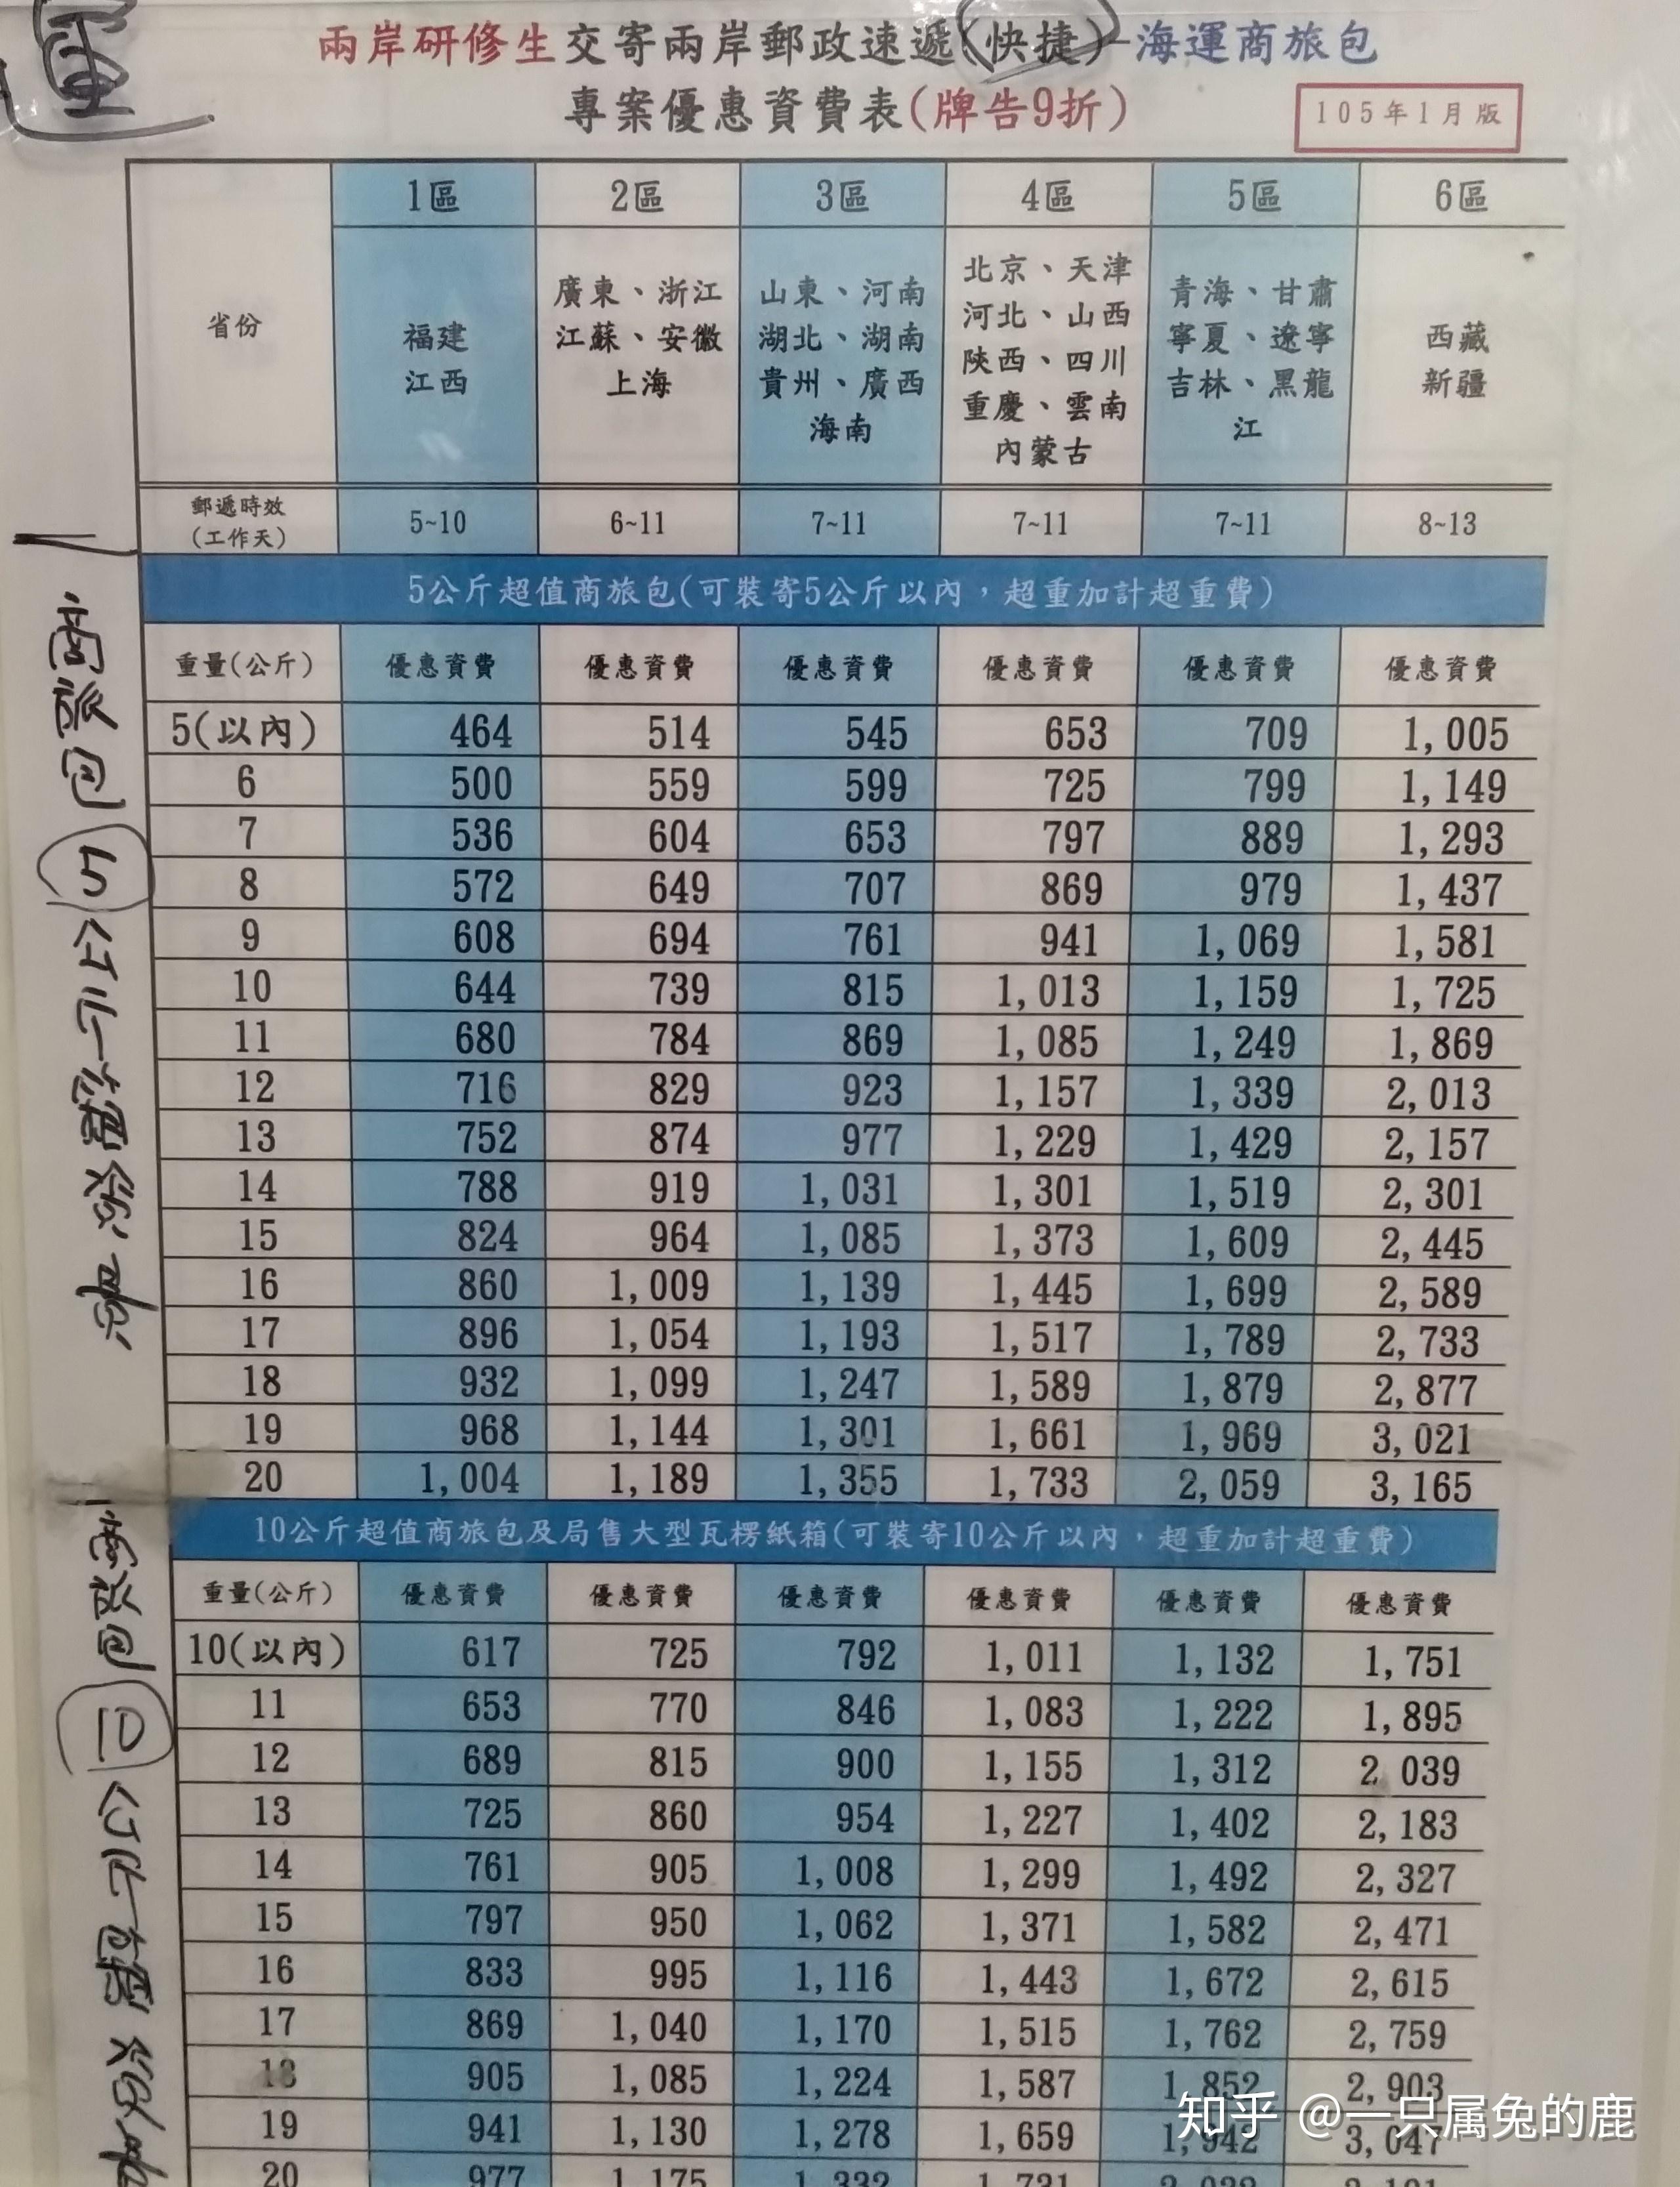 兩岸研修生交寄兩岸郵政速遞(快捷)-海運商旅包
專案優惠資費表(牌告9折)
105年1月版
省份 1區 2區 3區 4區 5區 6區
福建
江西
廣東、浙江
江蘇、安徽
上海
山東、河南
湖北、湖南
貴州、廣西
海南
北京、天津
河北、山西
陝西、四川
重慶、雲南
內蒙古
青海、甘肅
寧夏、遼寧
吉林、黑龍
江
西藏
新疆
郵遞時效
(工作天) 5~10 6~11 7~11 7~11 7~11 8~13
5公斤超值商旅包(可裝寄5公斤以內,超重加計超重費)
重量(公斤) 優惠資費 優惠資費 優惠資費 優惠資費 優惠資費 優惠資費
5(以內) 464 514 545 653 709 1,005
6 500 559 599 725 799 1,149
7 536 604 653 797 889 1,293
8 572 649 707 869 979 1,437
9 608 694 761 941 1,069 1,581
10 644 739 815 1,013 1,159 1,725
11 680 784 869 1,085 1,249 1,869
12 716 829 923 1,157 1,339 2,013
13 752 874 977 1,229 1,429 2,157
14 788 919 1,031 1,301 1,519 2,301
15 824 964 1,085 1,373 1,609 2,445
16 860 1,009 1,139 1,445 1,699 2,589
17 896 1,054 1,193 1,517 1,789 2,733
18 932 1,099 1,247 1,589 1,879 2,877
19 968 1,144 1,301 1,661 1,969 3,021
20 1,004 1,189 1,355 1,733 2,059 3,165
10公斤超值商旅包及局售大型瓦楞紙箱(可裝寄10公斤以內,超重加計超重費)
重量(公斤) 優惠資費 優惠資費 優惠資費 優惠資費 優惠資費 優惠資費
10(以內) 617 725 792 1,011 1,132 1,751
11 653 770 846 1,083 1,222 1,895
12 689 815 900 1,155 1,312 2,039
13 725 860 954 1,227 1,402 2,183
14 761 905 1,008 1,299 1,492 2,327
15 797 950 1,062 1,371 1,582 2,471
16 833 995 1,116 1,443 1,672 2,615
17 869 1,040 1,170 1,515 1,762 2,759
18 905 1,085 1,224 1,587 1,852 2,903
19 941 1,130 1,278 1,659 1,942 3,047
20 977 1,175 1,332 1,731
商旅包5公斤
商旅包10公斤
知乎 @一只属兔的鹿